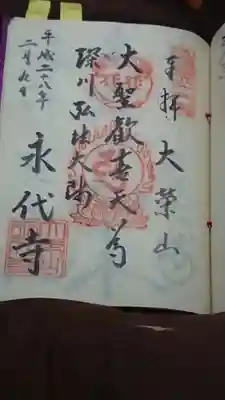 奉拝 大榮山
大聖歓喜天尊
深川弘法大師
永代寺
平成二十八年
二月九日